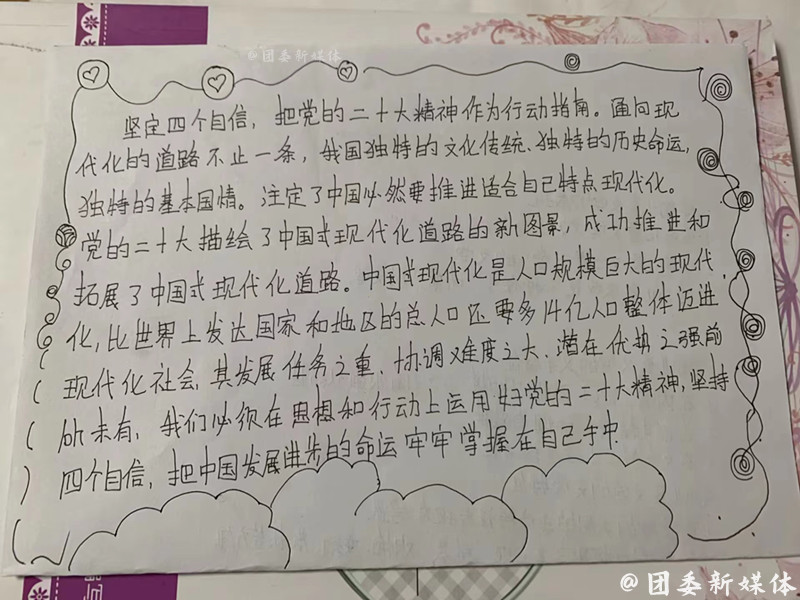 @团委新媒体
坚定四个自信，把党的二十大精神作为行动指南。通向现
代化的道路不止一条，我国独特的文化传统、独特的历史命运，
独特的基本国情。注定了中国必然要推进适合自己特点现代化。
党的二十大描绘了中国式现代化道路的新图景，成功推进和
拓展了中国式现代化道路。中国式现代化是人口规模巨大的现代
化，比世界上发达国家和地区的总人口还要多14亿人口整体迈进
现代化社会，其发展任务之重、协调难度之大、潜在优势之强前
所未有，我们必须在思想和行动上运用好党的二十大精神，坚持
四个自信，把中国发展进步的命运牢牢掌握在自己手中
@团委新媒体